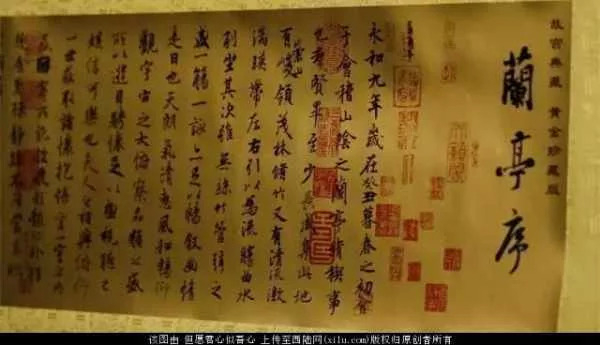 故宫典藏 黄金珍藏版
蘭亭序
永和九年歲在癸丑暮春之初會
于會稽山陰之蘭亭脩稧事
也羣賢畢至少長咸集此地
有崇山峻領茂林脩竹又有清流激
湍暎帶左右引以為流觴曲水
列坐其次雖無絲竹管弦之
盛一觴一詠亦足以暢敘幽情
是日也天朗氣清惠風和暢仰
觀宇宙之大俯察品類之盛
所以遊目騁懷足以極視聽之
娛信可樂也夫人之相與俯仰
一世或取諸懷抱悟言一室之內
或因寄所託放浪形骸之外雖
趣舍萬殊靜躁不同當其
该图由 但愿君心似吾心 上传至西陆网(xilu.com)版权归原创者所有